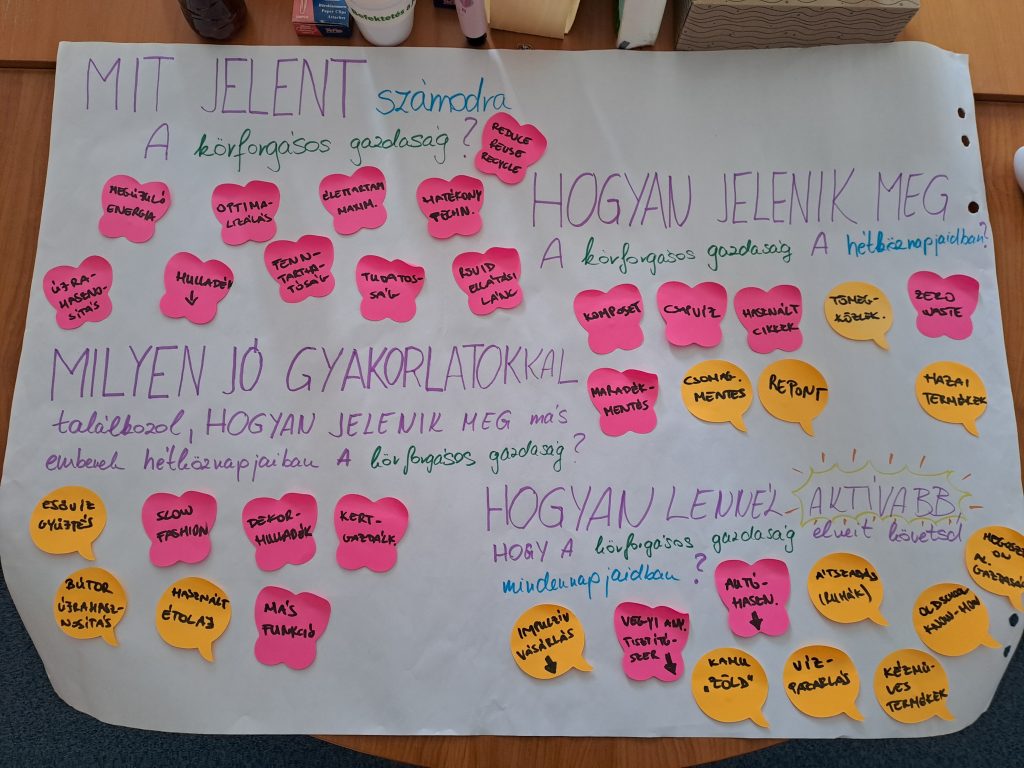 Befektetés a
MIT JELENT számodra
A körforgásos gazdaság?
REDUCE
REUSE
RECYCLE
MEGÚJULÓ
ENERGIA
OPTIMA-
LIZÁLÁS
ÉLETTARTAM
MAXIM.
HATÉKONY
TECHN.
ÚJRA-
HASZNO-
SÍTÁS
HULLADÉK
↓
FENN-
TARTHA-
TÓSÁG
TUDATOS-
SÁG
RÖVID
ELLÁTÁSI
LÁNC
HOGYAN JELENIK MEG
A körforgásos gazdaság A hétköznapjaidban?
KOMPOSZT
CSAPVÍZ
HASZNÁLT
CIKKEK
TÖMEG-
KÖZLEK.
ZERO
WASTE
MARADÉK-
MENTÉS
CSOMAG.
MENTES
REPONT
HAZAI
TERMÉKEK
MILYEN JÓ GYAKORLATOKKAL
találkozol, HOGYAN JELENIK MEG más
emberek hétköznapjaiban A körforgásos gazdaság?
ESŐVÍZ
GYŰJTÉS
SLOW
FASHION
DEKOR-
HULLADÉK
KERT-
GAZDÁLK.
BÚTOR
ÚJRAHASZ-
NOSÍTÁS
HASZNÁLT
ÉTOLAJ
MÁS
FUNKCIÓ
HOGYAN LENNÉL AKTÍVABB,
HOGY A körforgásos gazdaság elveit kövesd
mindennapjaidban?
IMPULZÍV
VÁSÁRLÁS
↓
VEGYI ANY.
TISZTÍTÓ-
SZER ↓
AUTÓ-
HASZN.
↓
ÁTSZABÁS
(RUHÁK)
OLDSCHOOL
KNOW-HOW
KAMU
„ZÖLD"
VÍZ-
PAZARLÁS
KÉZMŰ-
VES
TERMÉKEK